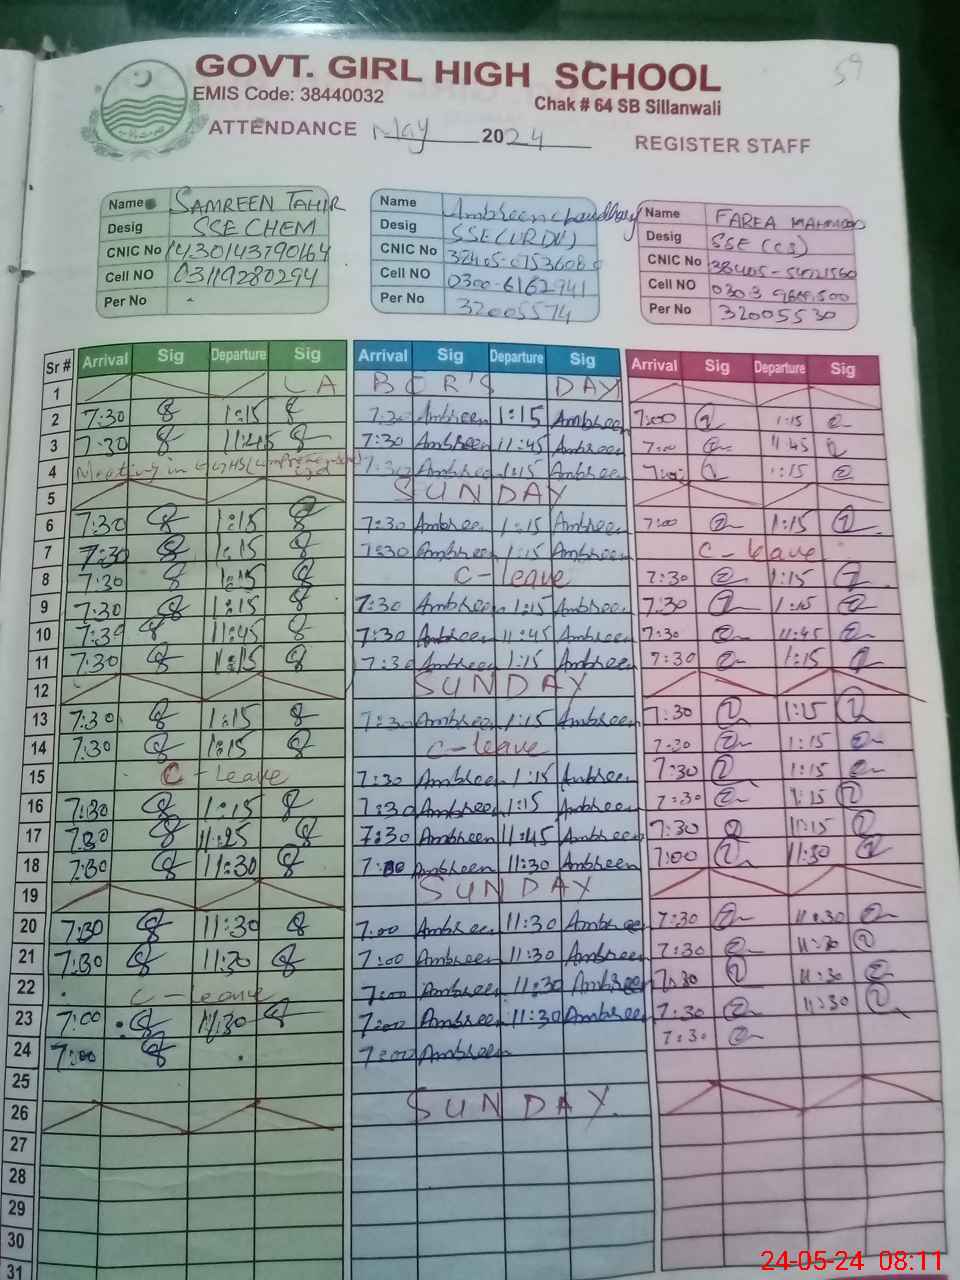 59
GOVT. GIRL HIGH SCHOOL
EMIS Code: 38440032
Chak # 64 SB Sillanwali
ATTENDANCE May 2024
REGISTER STAFF
Name SAMREEN TAHIR
Desig SSE CHEM
CNIC No
Cell NO 03119280294
Per No -
Name Ambreen chaudhary
Desig SSE (URDU)
CNIC No
Cell NO 0300-6162941
Per No 32005574
Name FAREA MAHMOOD
Desig SSE (CS)
CNIC No
Cell NO
Per No 32005530
Sr # Arrival Sig Departure Sig Arrival Sig Departure Sig Arrival Sig Departure Sig
1 LABOR'S DAY
2 7:30 1:15 7:30 Ambreen 1:15 Ambreen 7:00 1:15
3 7:30 11:45 7:30 Ambreen 11:45 Ambreen 7:00 11:45
4 Meeting in 7:30 Ambreen 1:15 Ambreen 7:00 1:15
5 SUNDAY
6 7:30 1:15 7:30 Ambreen 1:15 Ambreen 7:00 1:15
7 7:30 1:15 7:30 Ambreen 1:15 Ambreen C-leave
8 7:30 1:15 C-leave 7:30 1:15
9 7:30 1:15 7:30 Ambreen 1:15 Ambreen 7:30 1:15
10 7:30 11:45 7:30 Ambreen 11:45 Ambreen 7:30 11:45
11 7:30 1:15 7:30 Ambreen 1:15 Ambreen 7:30 1:15
12 SUNDAY
13 7:30 1:15 7:30 Ambreen 1:15 Ambreen 7:30 1:15
14 7:30 1:15 C-leave 7:30 1:15
15 C-Leave 7:30 Ambreen 1:15 Ambreen 7:30 1:15
16 7:30 1:15 7:30 Ambreen 1:15 Ambreen 7:30 1:15
17 7:30 7:30 Ambreen 11:45 Ambreen 7:30 11:15
18 7:30 11:30 Ambreen 11:30 Ambreen 7:00 11:30
19 SUNDAY
20 7:30 11:30 7:00 Ambreen 11:30 Ambreen 7:30 11:30
21 7:30 11:30 7:00 Ambreen 11:30 Ambreen 7:30 11:30
22 C-leave 7:00 Ambreen 11:30 Ambreen 7:30 11:30
23 7:00 11:30 7:00 Ambreen 11:30 Ambreen 7:30 11:30
24 7:00 7:00 Ambreen 7:30
25
26 SUNDAY.
27
28
29
30
31
24-05-24 08:11